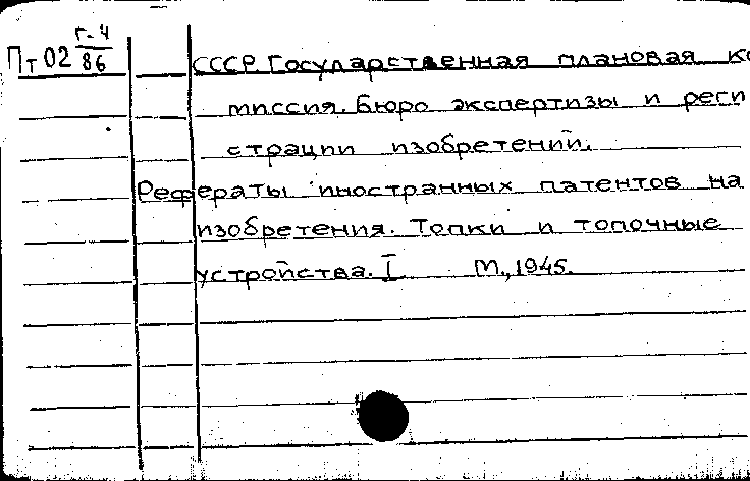 Г-4
Пт 02 86
СССР. Государственная плановая ко
миссия. Бюро экспертизы и реги
страции изобретений.
Рефераты иностранных патентов на
изобретения. Топки и топочные
устройства. I М., 1945.